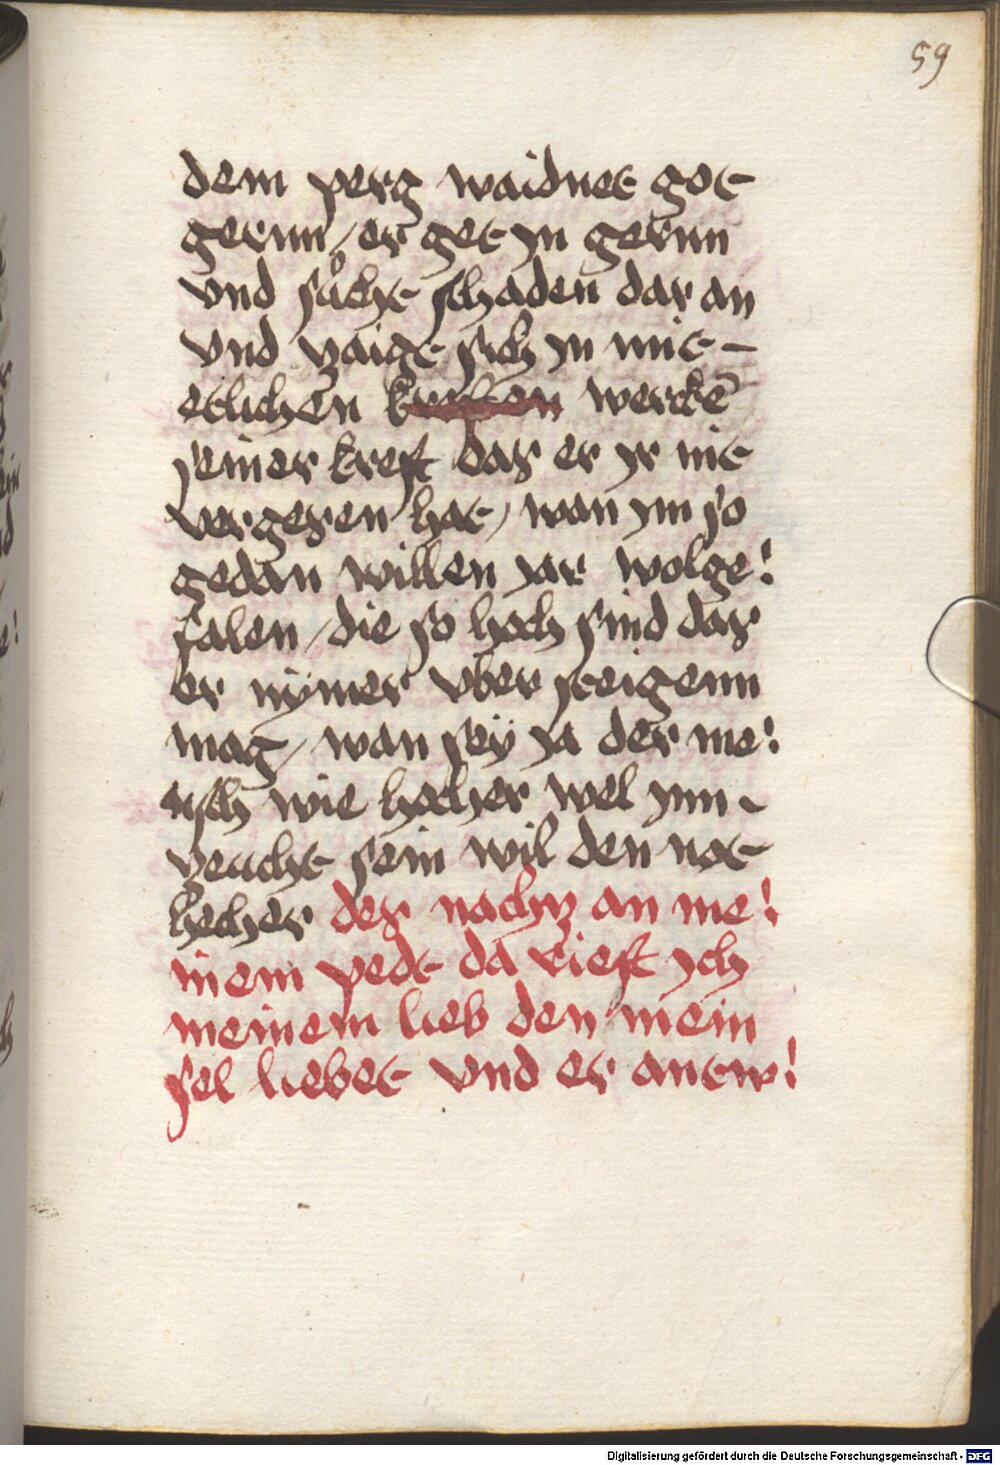 59
dem perg waidnet got
gernn / er get yn gernn
vnd sůcht schaden dar an
vnd zaigt sich yn mit –
etlichen kreften werckē
seiner kreft daz er yr nit
vergezen hat / wan ym so
gedan willen zar wolge!
falen / die so hoch sind daz
er nÿmer vber steigenn
mag / wan seÿ ya der me!
nsch wie hocher wel ynn –
zeucht sein wil den not
hecher dez nachz an me!
inem pedt da rieft ych
meinem lieb den mein
sel liebet vnd er antw!
Digitalisierung gefördert durch die Deutsche Forschungsgemeinschaft - DFG